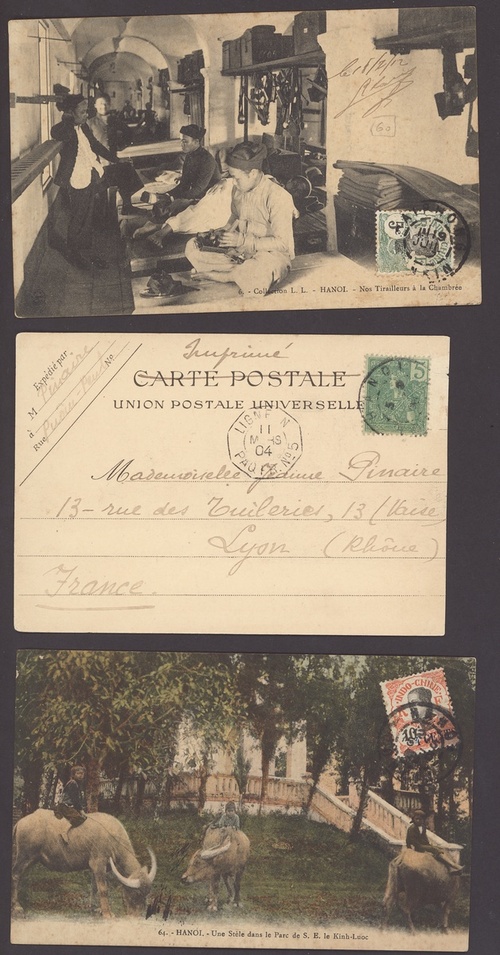 60
6. - Collection L. L. - HANOI. - Nos Tirailleurs à la Chambrée
Imprimé
Expédié par
M
à
Rue
No
CARTE POSTALE
UNION POSTALE UNIVERSELLE
5
LIGNE N
11
MARS
04
PAQ. FR. No 5
Mademoiselle Jeanne Pinaire
13 - rue des Tuileries, 13 (Vaise)
Lyon (Rhône)
France.
INDO-CHINE
10
64. - HANOI. - Une Stèle dans le Parc de S. E. le Kinh-Luoc